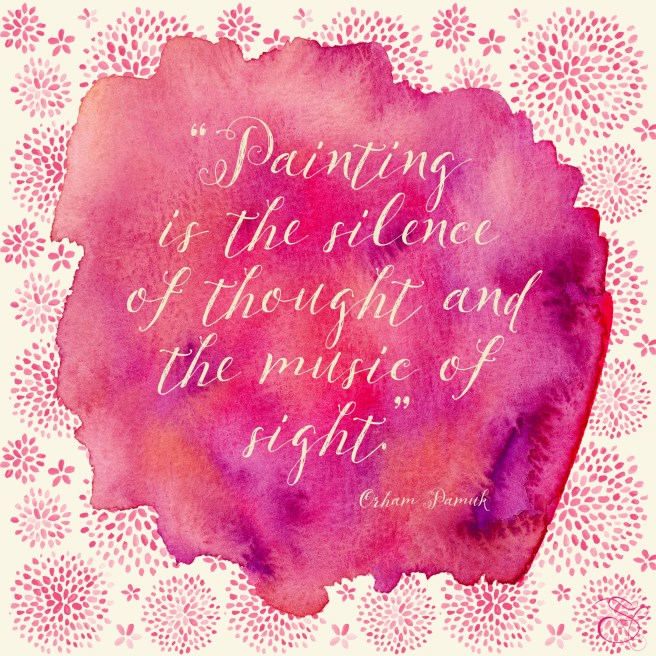 “Painting
is the silence
of thought and
the music of
sight.”
Orham Pamuk